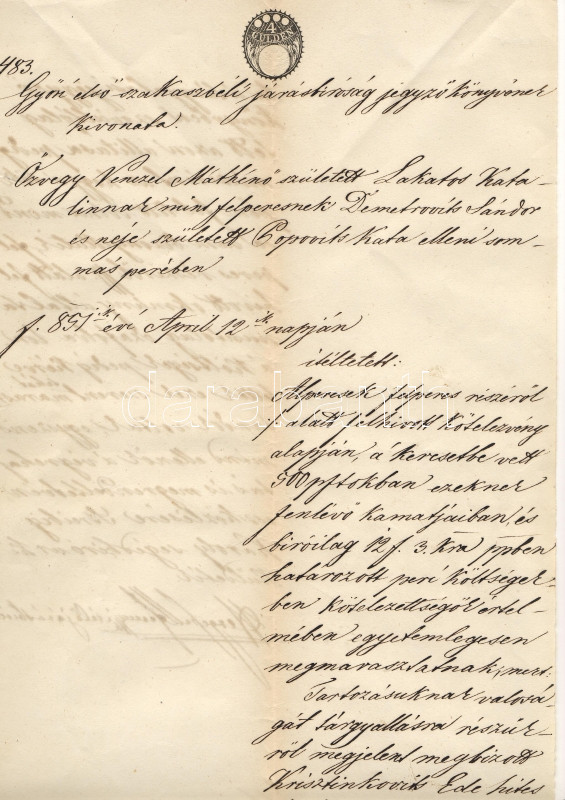 4
GULDEN
483.
Győri első szakaszbéli járásbiróság jegyzőkönyvének
kivonata.
Özvegy Venczel Máthénő született Lakatos Kata-
linnak mint felperesnek Demetrovits Sándor
és neje született Popovits Kata elleni som-
más perében
f. 851ik évi April 12ik napján
itéltetett:
Alperesek felperes részéről
alatt felhivott kötelezvény
alapján, á keresetbe vett
500 pftokban ezeknek
fenlévő kamatjaiban, és
biróilag 12 f. 3. Kra ppben
határozott peri költségek-
ben kötelezettségök értel-
mében egyetemlegesen
megmarasztatnak, mert:
Tartozásuknak valósá-
gát tárgyallásra részük-
ről megjelent megbizott
Krisztinkovits Ede hites
darabanth